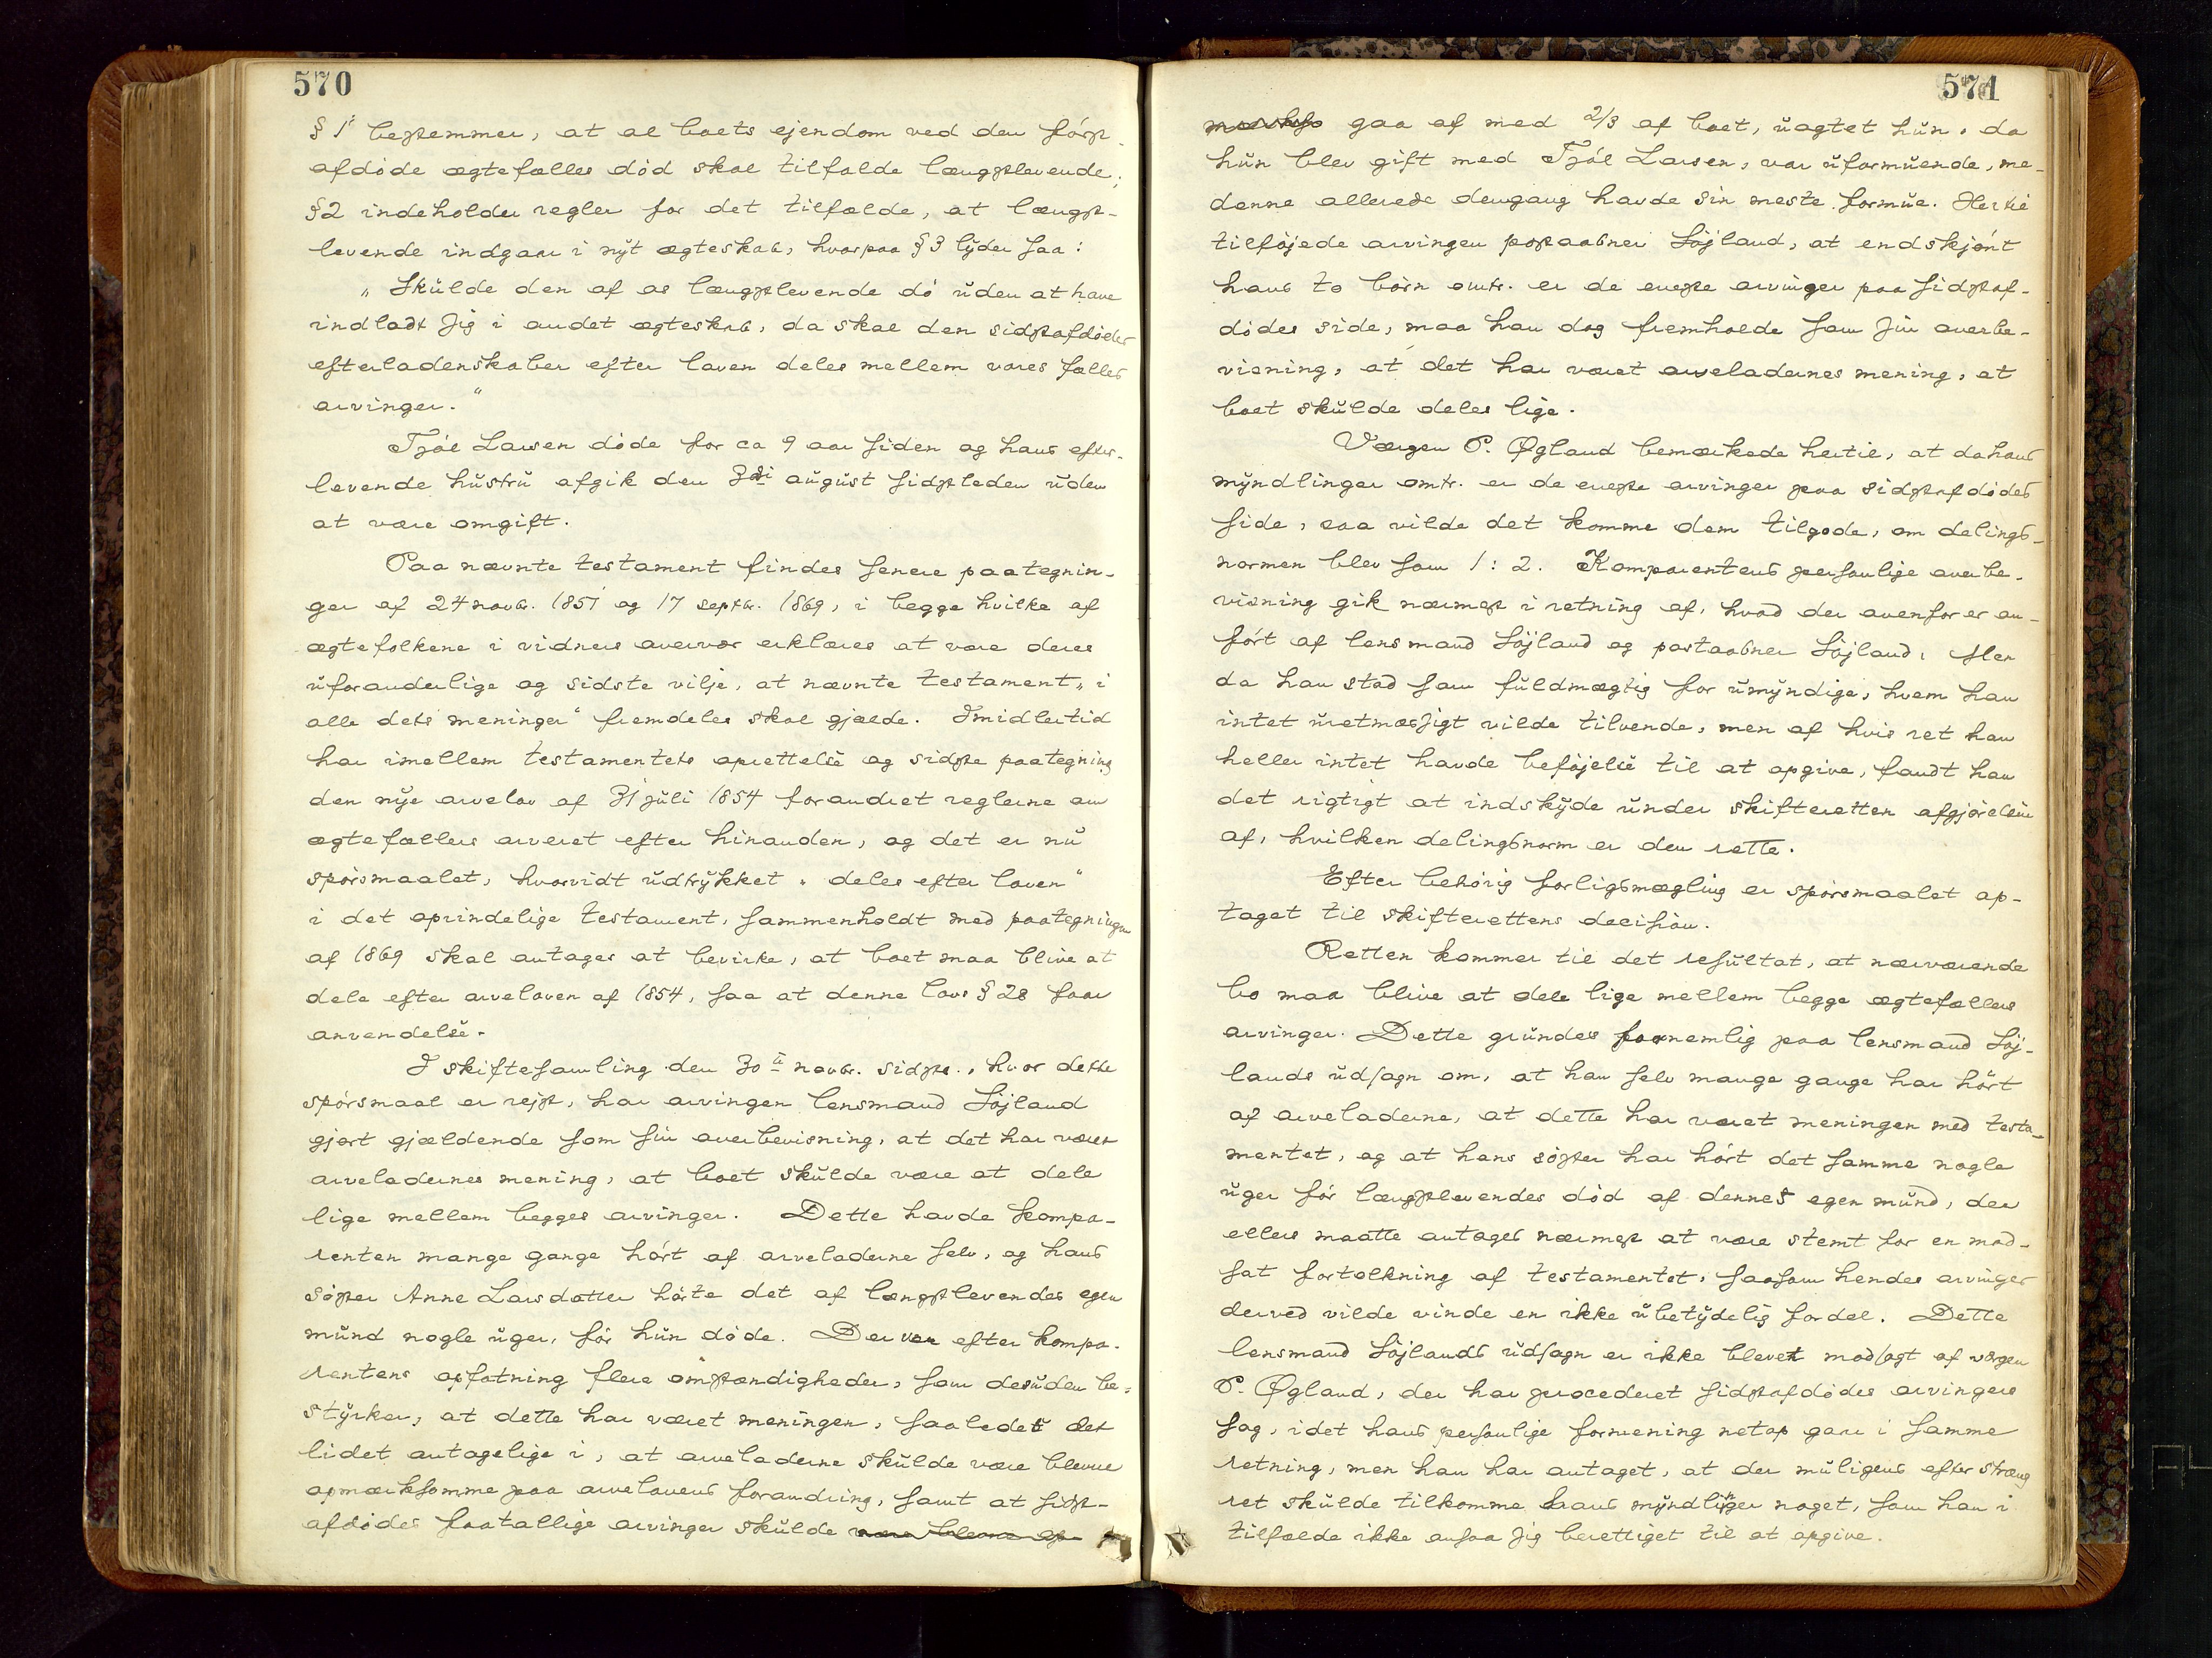 570
§ 1 bestemmer, at al boets ejendom ved den først-
afdøde ægtefælles død skal tilfalde længstlevende;
§ 2 indeholder regler for det tilfælde, at længst-
levende indgaar i nyt ægteskab, hvorpaa § 3 lyder saa:
„Skulde den af os længstlevende dø uden at have
indladt sig i andet ægteskab, da skal den sidstafdødes
efterladenskaber efter loven deles mellem vores fælles
arvinger.“
Tjøl Larsen døde for ca 9 aar siden og hans efter-
levende hustru afgik den 3die august sidstleden uden
at være omgift.
Paa nævnte testament findes senere paategnin-
ger af 24 novbr. 1851 og 17 septbr. 1869, i begge hvilke af
ægtefolkene i vidners overvær erklæres at være deres
uforanderlige og sidste vilje, at nævnte testament „i
alle dets meninger“ fremdeles skal gjælde. Imidlertid
har imellem testamentets oprettelse og sidste paategning
den nye arvelov af 31 juli 1854 forandret reglerne om
ægtefællers arveret efter hinanden, og det er nu
spørsmaalet, hvorvidt udtrykket „deles efter loven“
i det oprindelige testament, sammenholdt med paategningen
af 1869 skal antages at bevirke, at boet maa blive at
dele efter arveloven af 1854, saa at denne lovs § 28 faar
anvendelse.
I skiftesamling den 30te novbr. sidste, hvor dette
spørsmaal er rejst, har arvingen lensmand Løjland
gjort gjældende som sin overbevisning, at det har været
arveladernes mening, at boet skulde være at dele
lige mellem begges arvinger. Dette havde kompa-
renten mange gange hørt af arveladerne selv, og hans
søster Anne Larsdatter hørte det af længstlevendes egen
mund nogle uger, før hun døde. Der var efter kompa-
rentens opfatning flere omstændigheder, som desuden be-
styrker, at dette har været meningen, saaledes det
lidet antagelige i, at arveladerne skulde være blevne
opmærksomme paa arvelovens forandring, samt at sidst-
afdødes faatallige arvinger skulde være blevne op-
571
mærkso gaa af med 2/3 af boet, uagtet hun, da
hun blev gift med Tjøl Larsen, var uformuende, me-
denne allerede dengang havde sin meste formue. Hertil
tilføjede arvingen postaabner Løjland, at endskjønt
hans to børn omtr. er de eneste arvinger paa sidstaf-
dødes side, maa han dog fremholde som sin overbe-
visning, at det har været arveladernes mening, at
boet skulde deles lige.
Værgen P. Øgland bemærkede hertil, at da hans
myndlinger omtr. er de eneste arvinger paa sidstafdødes
side, saa vilde det komme dem tilgode, om delings-
normen blev som 1:2. Komparentens personlige overbe-
visning gik nærmest i retning af, hvad der ovenfor er an-
ført af lensmand Løjland og postaabner Løjland, Men
da han stod som fuldmægtig for umyndige, hvem han
intet uretmæssigt vilde tilvende, men af hvis ret han
heller intet havde beføjelse til at opgive, fandt han
det rigtigt at indskyde under skifteretten afgjørelsen
af, hvilken delingsnorm er den rette.
Efter behørig forligsmægling er spørsmaalet op-
taget til skifterettens decision.
Retten kommer til det resultat, at nærværende
bo maa blive at dele lige mellem begge ægtefællers
arvinger. Dette grundes fornemlig paa lensmand Løj-
lands udsagn om, at han selv mange gange har hørt
af arveladerne, at dette har været meningen med testa-
mentet, og at hans søster har hørt det samme nogle
uger før længstlevendes død af dennes egen mund, der
ellers maatte antages nærmest at være stemt for en mod-
sat fortolkning af testamentet, saasom hendes arvinger
derved vilde vinde en ikke ubetydelig fordel. Dette
lensmand Løjlands udsagn er ikke blevet modsagt af værgen
P. Øgland, der har procederet sidstafdødes arvingers
sag, idet hans personlige formening netop gaar i samme
retning, men han har antaget, at der muligens efter streng
ret skulde tilkomme hans myndlinger noget, som han i
tilfælde ikke ansaa sig berettiget til at opgive.